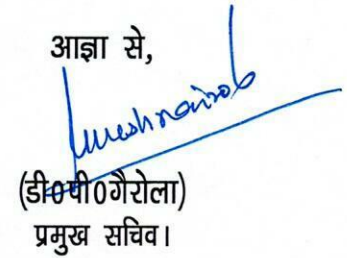 आज्ञा से,
(डी0पी0गैरोला)
प्रमुख सचिव।